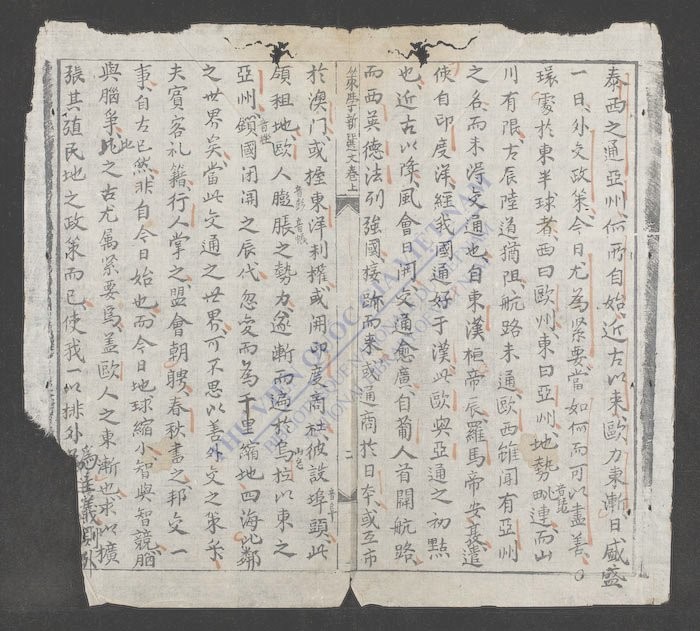 泰西之通亞州何所自始近古以來歐力東漸日威盛
一日外交政策今日尤為緊要當如何而可以盡善○
環處於東半球者西曰歐州東曰亞州地勢毗連而山
川有限古辰陸道猶阻航路未通歐西雖聞有亞州
之名而未淂交通也自東漢桓帝辰羅馬帝安敦遣
使自印度洋經我國通好于漢此歐與亞通之初點
也近古以降風會日開交通愈廣自葡人首闢航路
而西英德法列強國接跡而來或通商於日本或互市
新選文卷上
二
於澳门或握東洋利權或開印度商社彼設埠頭此
領租地歐人膨脹之勢力遂漸而遍於烏拉以東之
亞州鎖國閉関之辰代忽变而為千里縮地四海比鄰
之世界矣當此交通之世界可不思以善外交之策乎
夫賓客礼籍行人掌之盟會朝聘春秋書之邦交一
事自古已然非自今日始也而今日地球縮小智與智競腦
與腦爭此之古尤屬緊要焉盖歐人之東漸也求以擴
張其殖民地之政策而已使我一以排外為主義則
THƯ VIỆN QUỐC GIA VIỆT NAM
NATIONAL LIBRARY OF VIETNAM